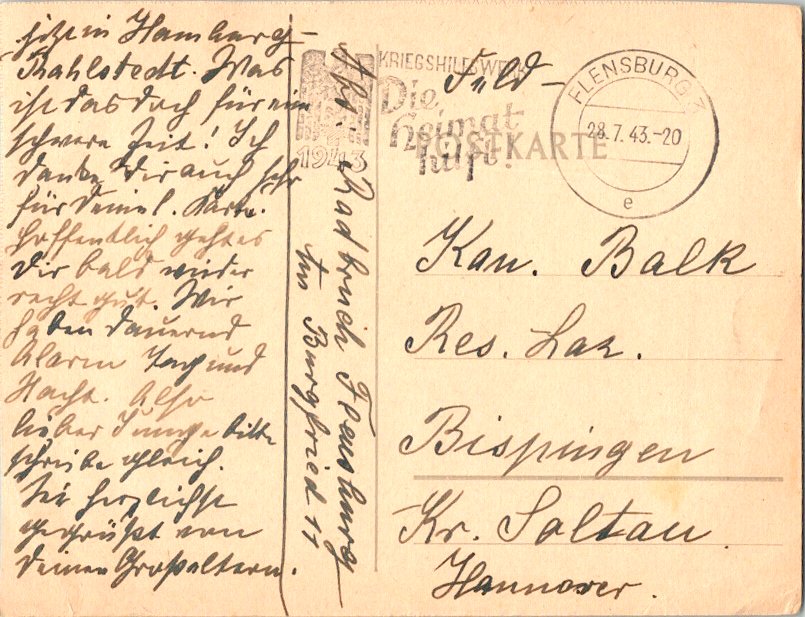 sitze in Hamburg-
Rahlstedt. Was
ist das doch für eine
schwere Zeit! Ich
danke Dir auch sehr
für Deine l. Karte.
Hoffentlich geht es
Dir bald wieder
recht gut. Wir
haben dauernd
Alarm Tag und
Nacht. Also
lieber Junge bitte
schreibe gleich.
Sei herzlichst
gegrüßt von
Deinen Großeltern.
Abs. Radbruch Flensburg
Am Burgfried 11
KRIEGSHILFSWERK
Die
Heimat
hilft!
1943
FLENSBURG 1
28.7.43.-20
e
Feld-
POSTKARTE
Kan. Balk
Res. Laz.
Bispingen
Kr. Soltau
Hannover.